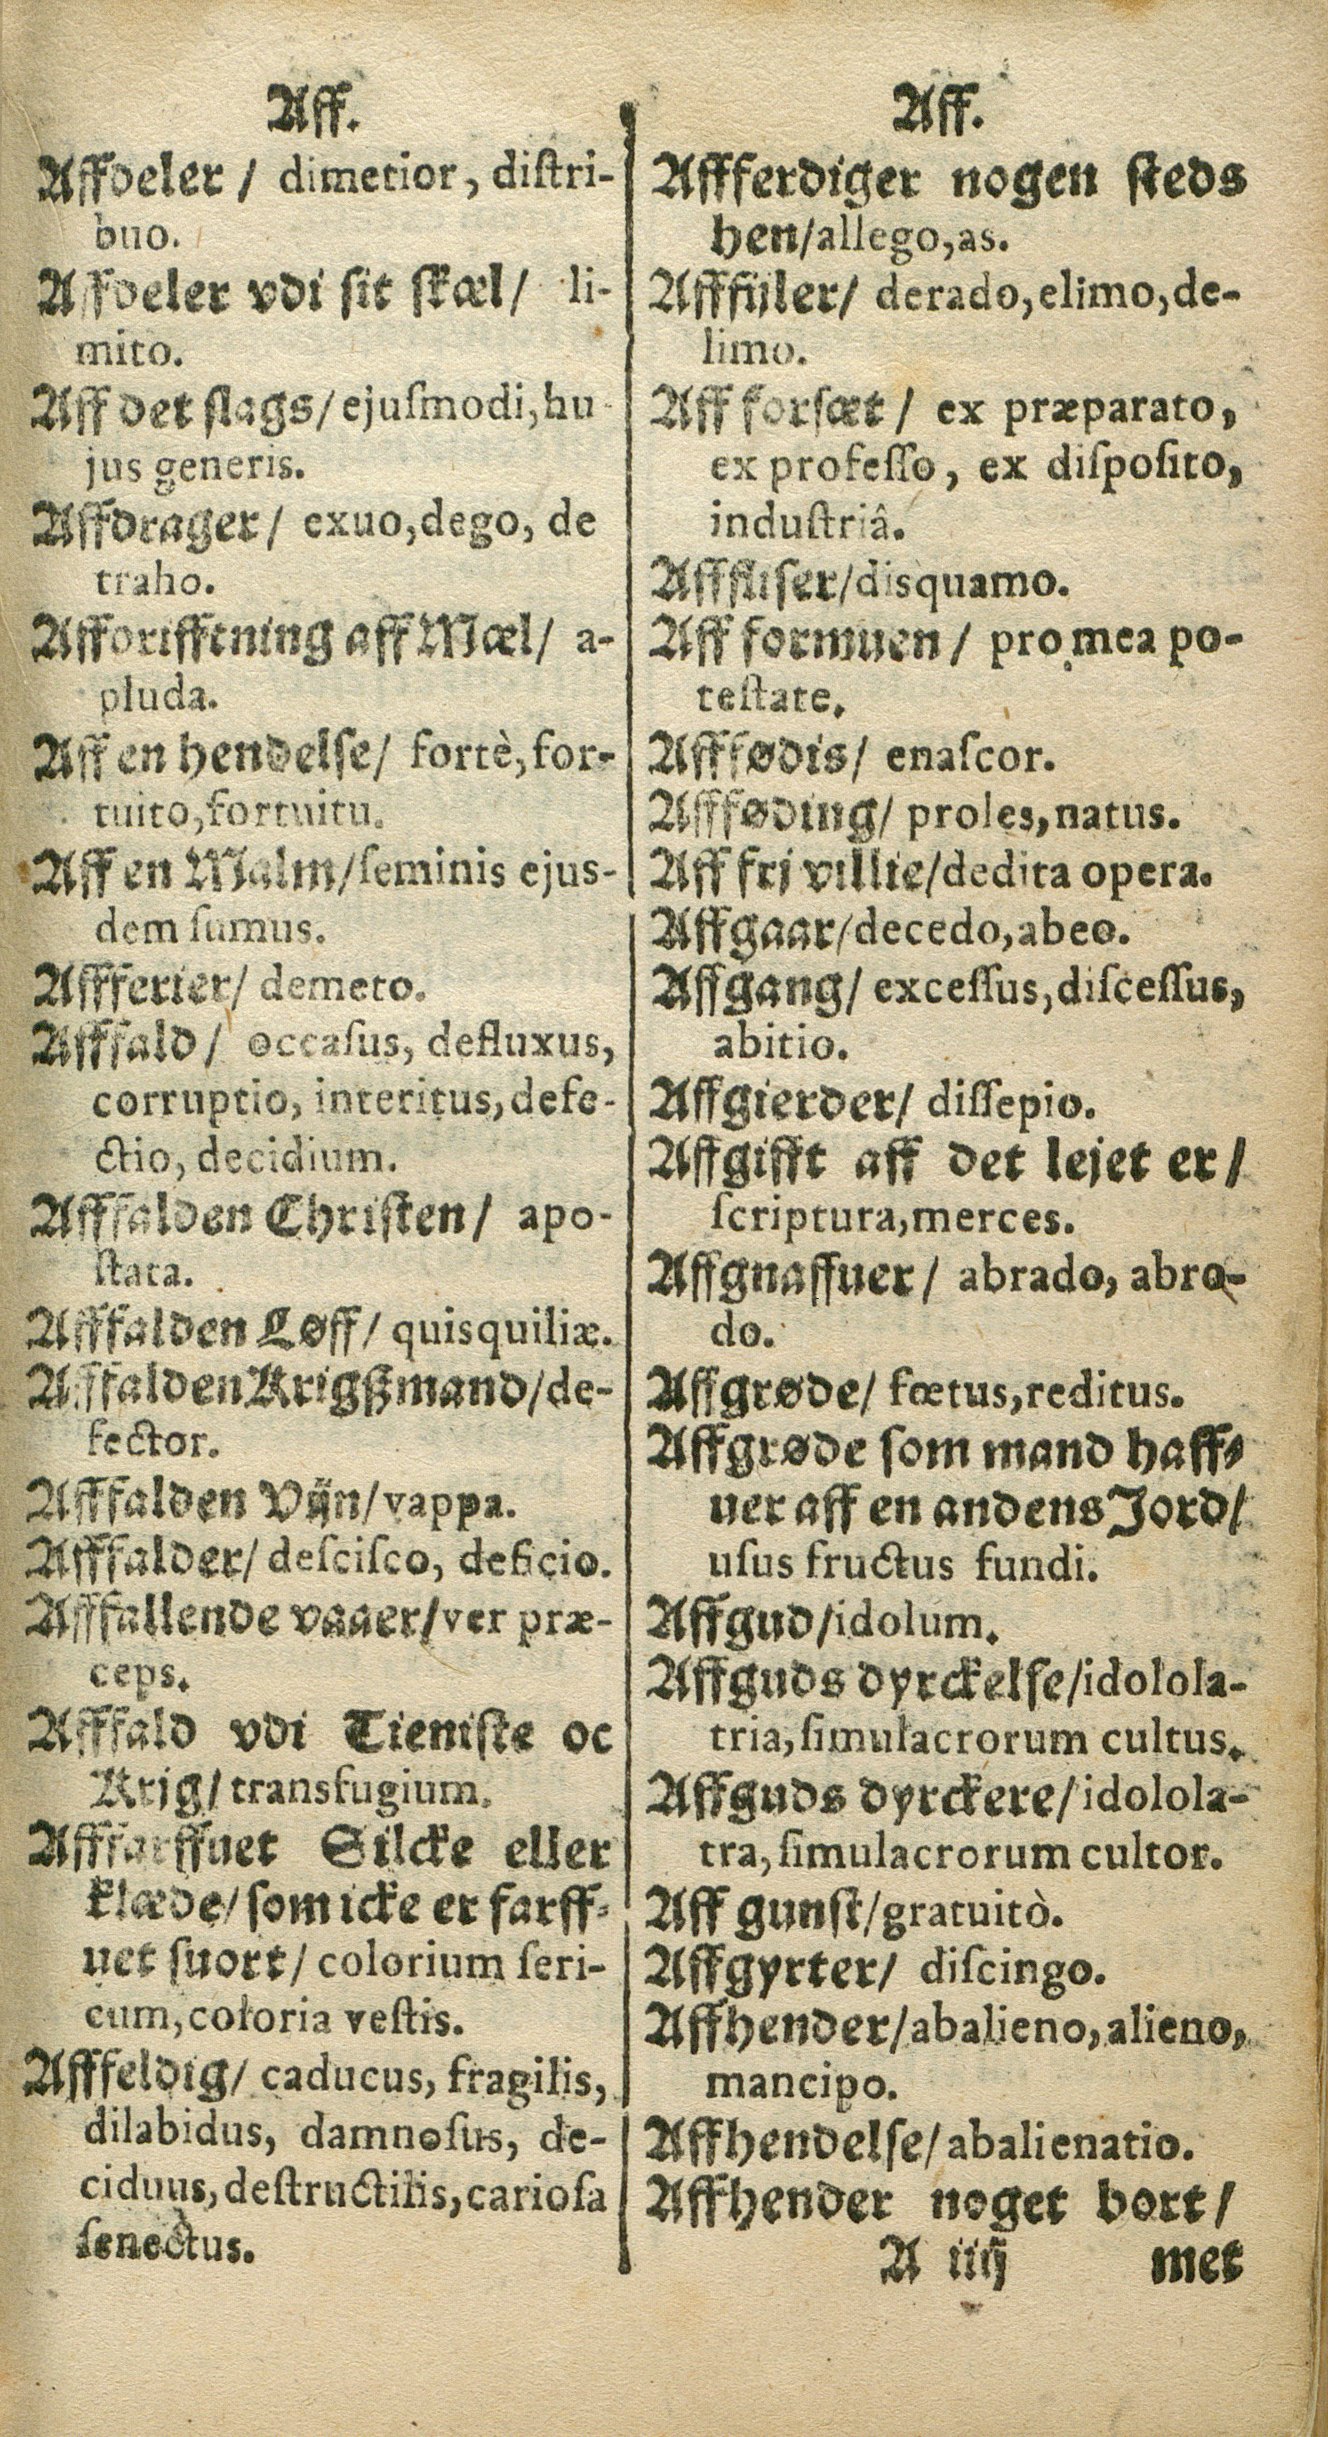 Aff.
Affdeler / dimetior, diſtri-
buo.
Affdeler vdi ſit ſkæl/ li-
mito.
Aff det ſlags/ ejuſmodi, hu-
jus generis.
Affdrager/ exuo, dego, de
traho.
Affdrifftning aff Mæl/ a-
pluda.
Aff en hendelſe/ fortè, for-
tuito, fortuitu.
Aff en Malm/ ſeminis ejus-
dem ſumus.
Affferier/ demeto.
Afffald/ occaſus, defluxus,
corruptio, interitus, defe-
ctio, decidium.
Afffalden Chriſten/ apo-
ſtata.
Afffalden Løff/ quisquiliæ.
Afffalden Krigßmand/ de-
fector.
Afffalden Vijn/ vappa.
Afffalder/ deſciſco, deficio.
Afffallende vaaer/ ver præ-
ceps.
Afffald vdi Tieniſte oc
Krig/ transfugium.
Afffarffuet Silcke eller
klæde/ ſom icke er farff-
uet ſuort/ colorium ſeri-
cum, coloria veſtis.
Afffeldig/ caducus, fragilis,
dilabidus, damnoſus, de-
ciduus, deſtructilis, carioſa
ſenectus.
Aff.
Affferdiger nogen ſteds
hen/ allego, as.
Afffijler/ derado, elimo, de-
limo.
Aff forſæt/ ex præparato,
ex profeſſo, ex diſpoſito,
induſtriâ.
Afffliſer/ disquamo.
Aff formuen/ pro mea po-
teſtate.
Afffødis/ enaſcor.
Affføding/ proles, natus.
Aff frj villie/ dedita opera.
Affgaar/ decedo, abeo.
Affgang/ exceſſus, diſceſſus,
abitio.
Affgierder/ diſſepio.
Affgifft aff det lejet er/
ſcriptura, merces.
Affgnaffuer/ abrado, abro-
do.
Affgrøde/ fœtus, reditus.
Affgrøde ſom mand haff-
uer aff en andens Jord/
uſus fructus fundi.
Affgud/ idolum.
Affguds dyrckelſe/ idolola-
tria, ſimulacrorum cultus.
Affguds dyrckere/ idolola-
tra, ſimulacrorum cultor.
Aff gunſt/ gratuitò.
Affgyrter/ diſcingo.
Affhender/ abalieno, alieno,
mancipo.
Affhendelſe/ abalienatio.
Affhender noget bort/
A iiij met